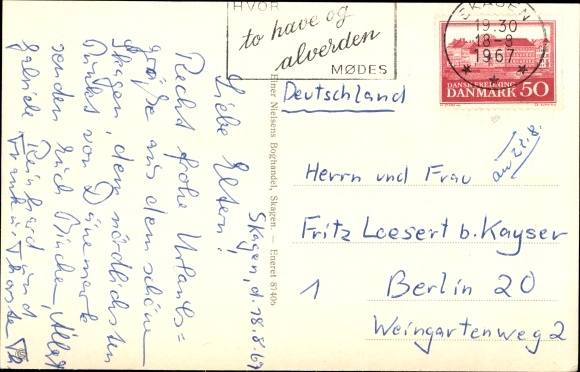 HVOR
to have og
alverden
MØDES
SKAGEN
19.30
18-8
1967
DANSK FREDNING
DANMARK 50
Deutschland
an 22.8.
Herrn und Frau
Fritz Loesert b. Kayser
1 Berlin 20
Weingartenweg 2
Einer Nielsens Boghandel, Skagen. — Eneret 87406
Skagen, d. 18.8.67
Liebe Eltern!
Recht frohe Urlaubs=
grüße aus dem schönen
Skagen, dem nördlichsten
Punkt von Dänemark
senden Euch
Reinhard und